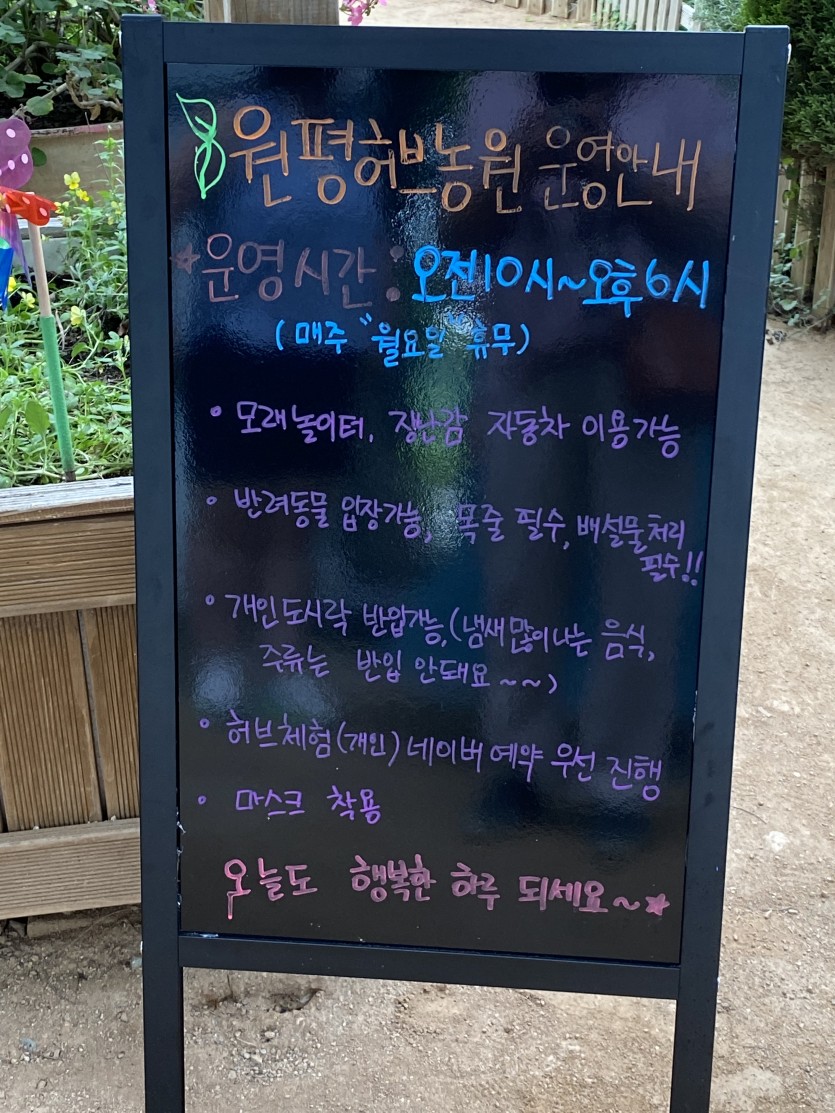 원평허브농원 운영안내
*운영시간 : 오전10시~오후6시
(매주 "월요일" 휴무)
• 모래놀이터, 장난감 자동차 이용가능
• 반려동물 입장가능, 목줄 필수, 배설물처리
필수!!
• 개인도시락 반입가능, (냄새많이나는 음식,
주류는 반입 안돼요~~)
• 허브체험(개인) 네이버 예약 우선 진행
• 마스크 착용
오늘도 행복한 하루 되세요~★